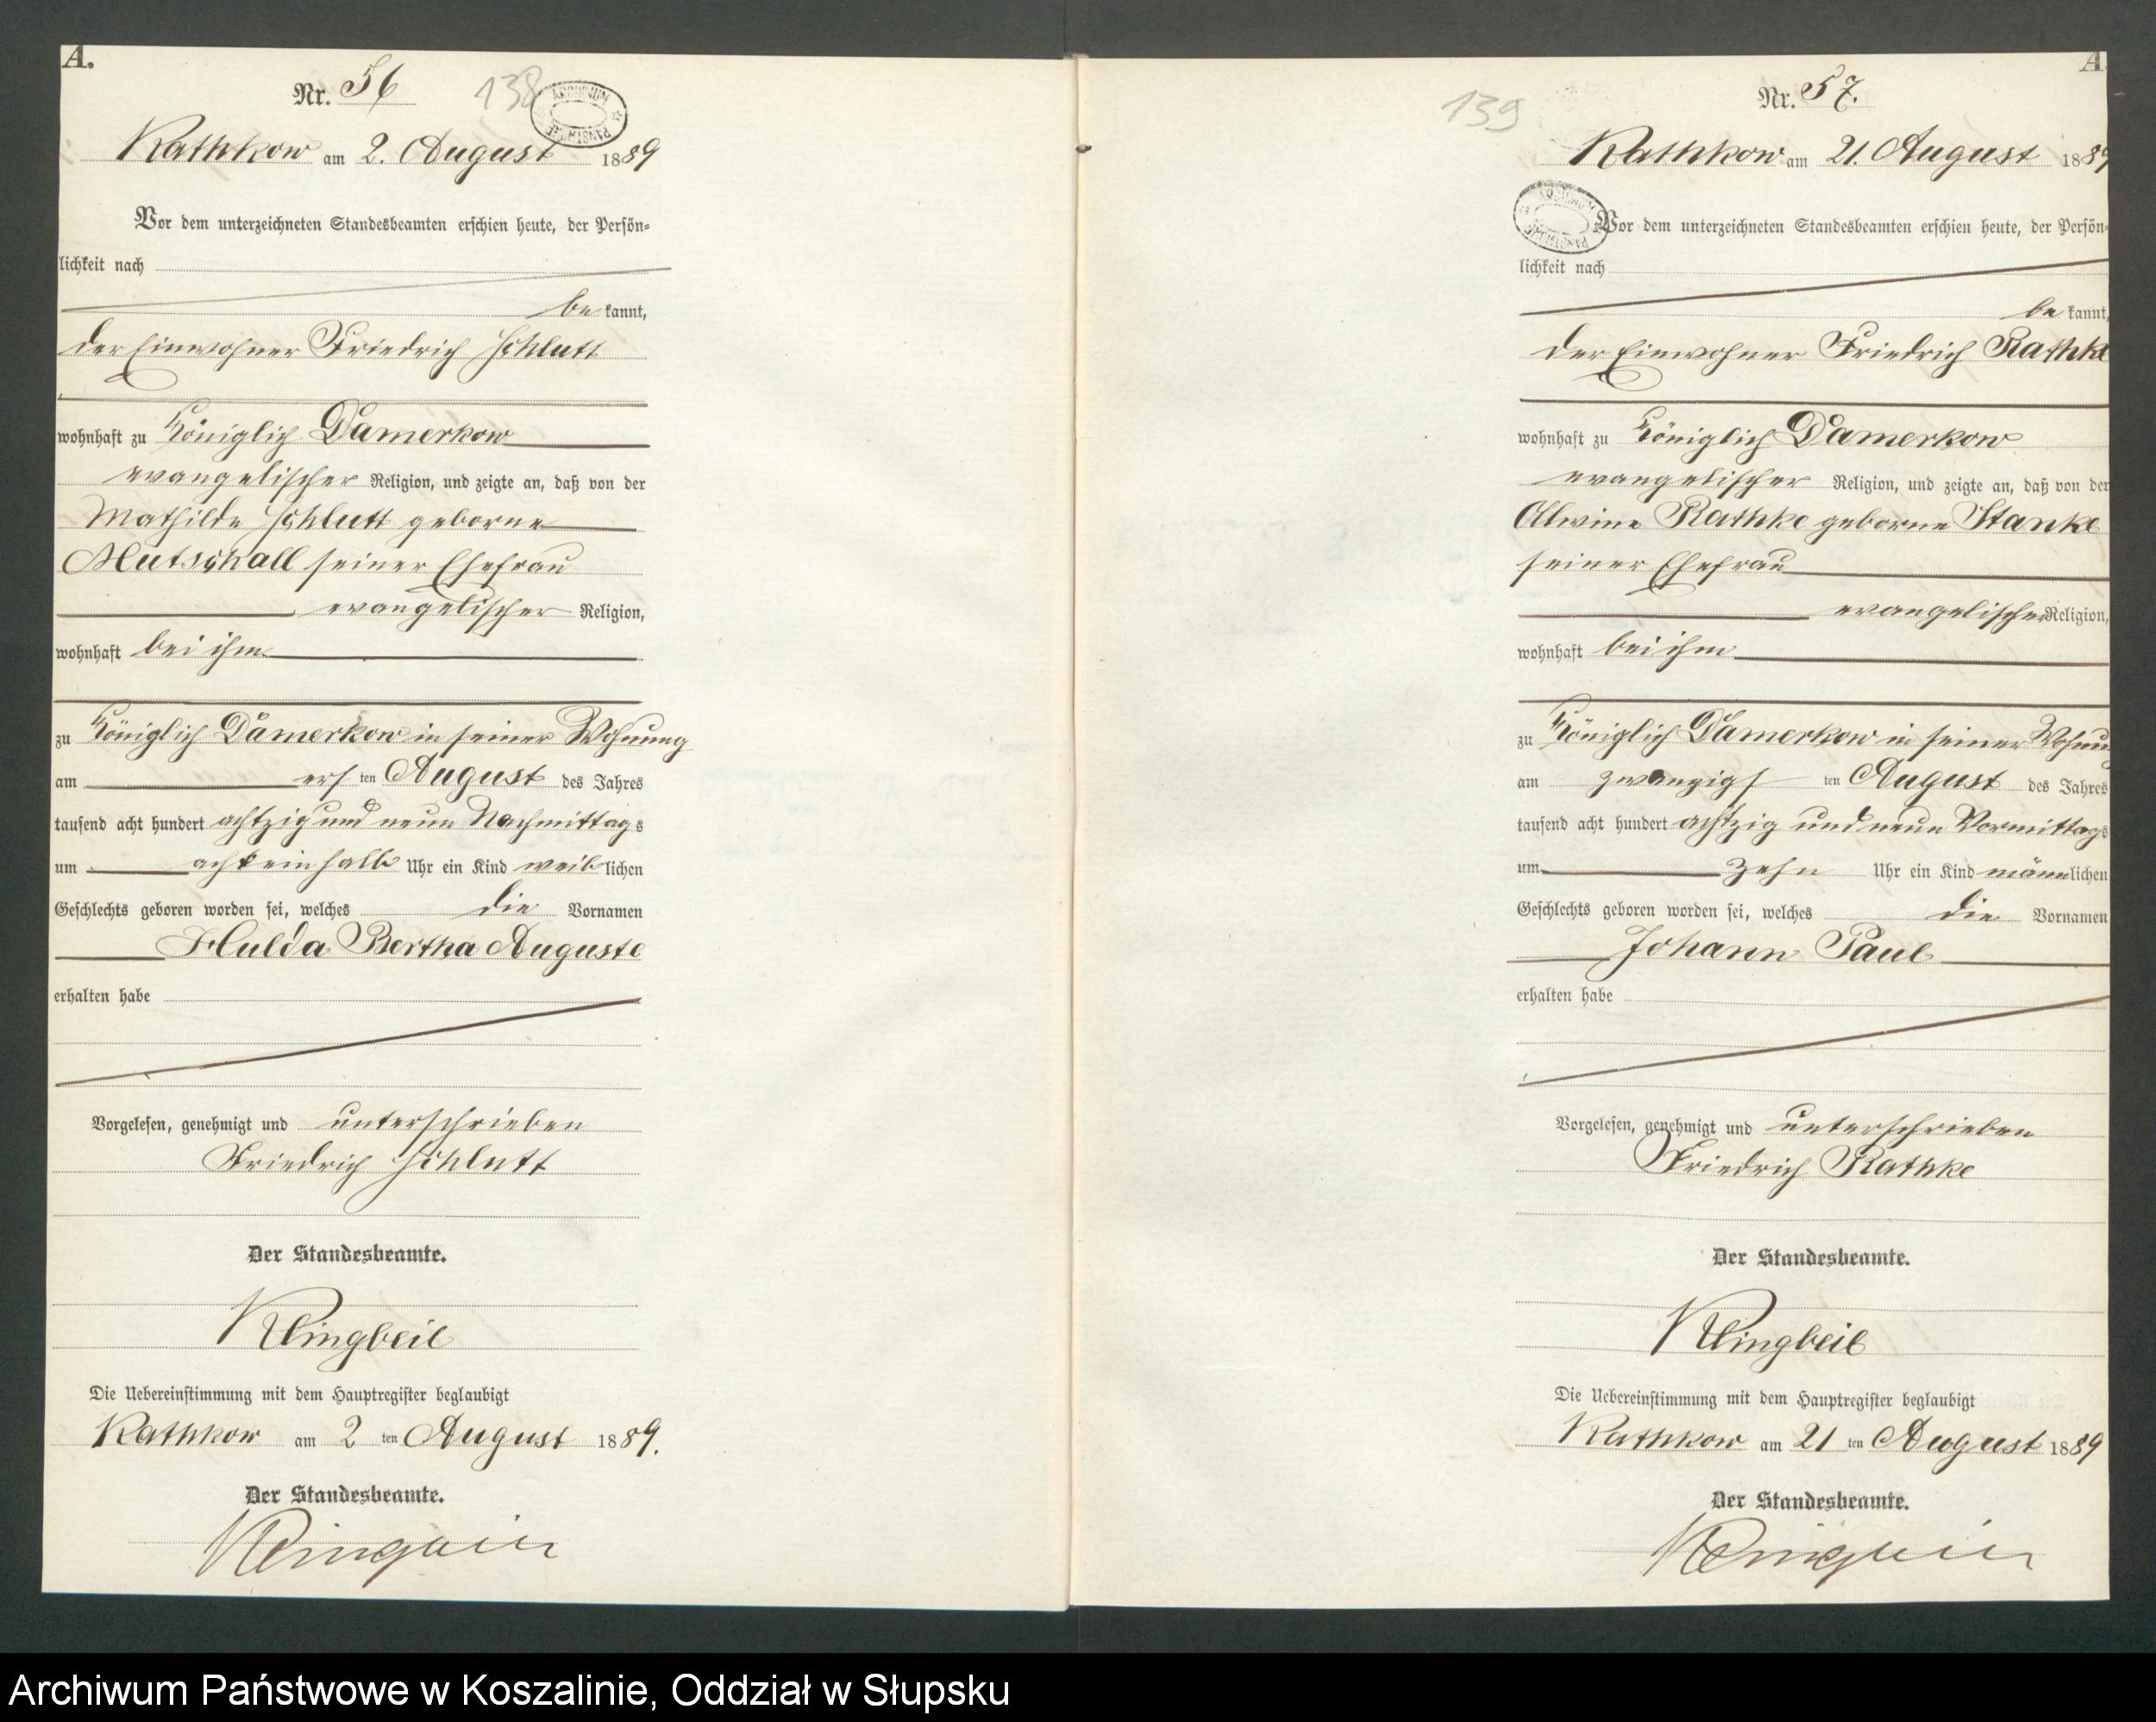 A.
Nr. 56
138
ARCHIWUM PAŃSTWOWE
Rathkow am 2. August 1889
Vor dem unterzeichneten Standesbeamten erschien heute, der Persön-
lichkeit nach
be kannt,
der Einwohner Friedrich Schlutt
wohnhaft zu Königlich Damerkow
evangelischer Religion, und zeigte an, daß von der
Mathilde Schlutt geborne
Mutschall seiner Ehefrau
evangelischer Religion,
wohnhaft bei ihm
zu Königlich Damerkow in seiner Wohnung
am ers ten August des Jahres
tausend acht hundert achtzig und neun Nachmittags
um achteinhalb Uhr ein Kind weiblichen
Geschlechts geboren worden sei, welches die Vornamen
Hulda Bertha Auguste
erhalten habe
Vorgelesen, genehmigt und unterschrieben
Friedrich Schlutt
Der Standesbeamte.
Klingbeil
Die Uebereinstimmung mit dem Hauptregister beglaubigt
Rathkow am 2 ten August 1889.
Der Standesbeamte.
Klingbeil
A.
Nr. 57.
139
Rathkow am 21. August 1889
Vor dem unterzeichneten Standesbeamten erschien heute, der Persön-
lichkeit nach
be kannt,
der Einwohner Friedrich Rathke
wohnhaft zu Königlich Damerkow
evangelischer Religion, und zeigte an, daß von der
Alwine Rathke geborne Stanke
seiner Ehefrau
evangelischer Religion,
wohnhaft bei ihm
zu Königlich Damerkow in seiner Wohnung
am zwanzigs ten August des Jahres
tausend acht hundert achtzig und neun Vormittags
um zehn Uhr ein Kind männlichen
Geschlechts geboren worden sei, welches die Vornamen
Johann Paul
erhalten habe
Vorgelesen, genehmigt und unterschrieben
Friedrich Rathke
Der Standesbeamte.
Klingbeil
Die Uebereinstimmung mit dem Hauptregister beglaubigt
Rathkow am 21 ten August 1889
Der Standesbeamte.
Klingbeil
Archiwum Państwowe w Koszalinie, Oddział w Słupsku